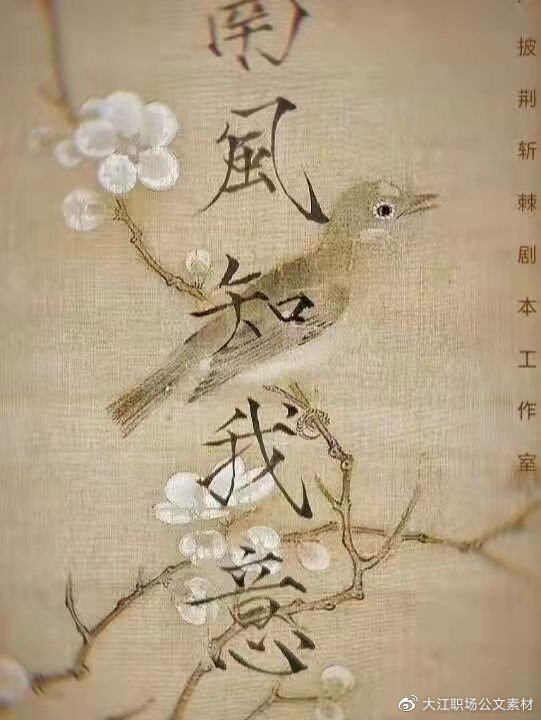 披荆斩棘剧本工作室
南風知我意
大江职场公文素材